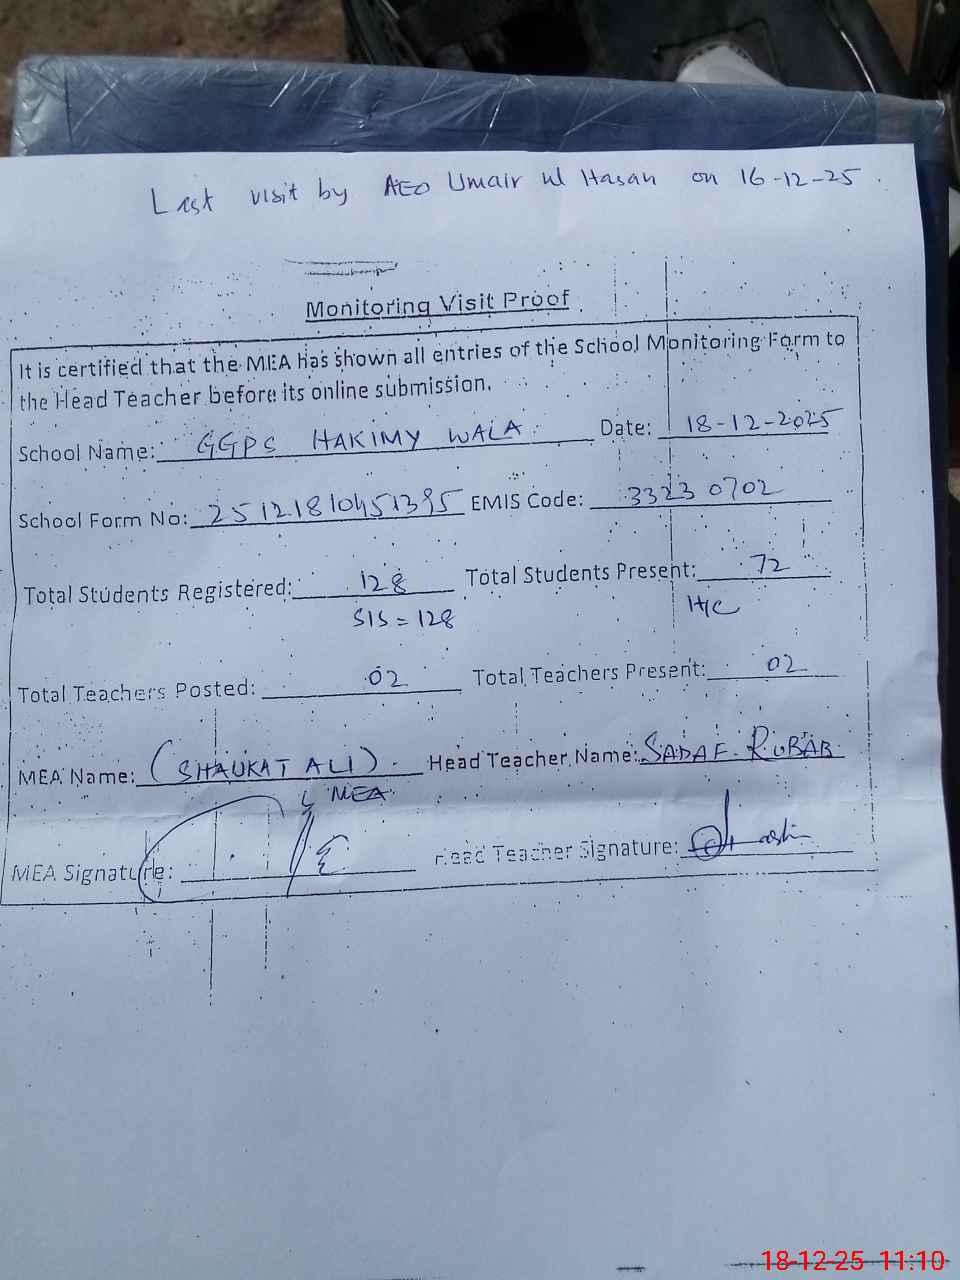 Last visit by AEO Umair ul Hasan on 16-12-25.
Monitoring Visit Proof
It is certified that the MEA has shown all entries of the School Monitoring Form to
the Head Teacher before its online submission.
School Name: GGPS HAKIMY WALA. Date: 18-12-2025
School Form No: 25121810451395 EMIS Code: 33230702
Total Students Registered: 128 Total Students Present: 72
SIS = 128 H/C
Total Teachers Posted: 02 Total Teachers Present: 02
MEA Name: (SHAUKAT ALI). Head Teacher Name: SADAF RUBAB
MEA
MEA Signature: Head Teacher Signature:
18-12-25 11:10